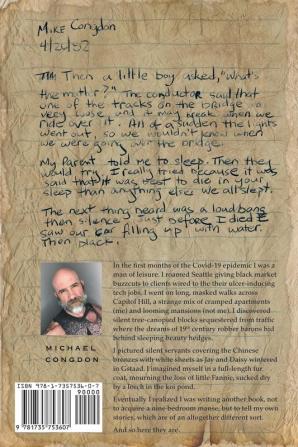 MIKE CONGDON
4/26/82
Then a little boy asked, "what's
the matter?" The conductor said that
one of the tracks on the bridge is
very loose, and it may break when we
ride over it. All of a sudden the lights
went out, so we wouldn't know when
we were going over the bridge.
My Parent told me to sleep. Then they
would try. I really tried because it was
said that it was best to die in your
sleep than anything else we all slept.
The next thing heard was a loud bang
then silence. Just before I died I
saw our car filling up with water.
Then black.
MICHAEL
CONGDON
In the first months of the Covid-19 epidemic I was a
man of leisure. I roamed Seattle giving black market
buzzcuts to clients wired to the their ulcer-inducing
tech jobs. I went on long, masked walks across
Capitol Hill, a strange mix of cramped apartments
(me) and looming mansions (not me). I discovered
silent tree-canopied blocks sequestered from traffic
where the dreams of 19th century robber barons hid
behind sleeping beauty hedges.
I pictured silent servants covering the Chinese
bronzes with white sheets as Jay and Daisy wintered
in Gstaad. I imagined myself in a full-length fur
coat, mourning the loss of little Fannie, sucked dry
by a leech in the koi pond.
Eventually I realized I was writing another book, not
to acquire a nine-bedroom manse, but to tell my own
stories, which are of an altogether different sort.
And so here they are.
ISBN 978-1-7357536-0-7
90000
9 781735 753607